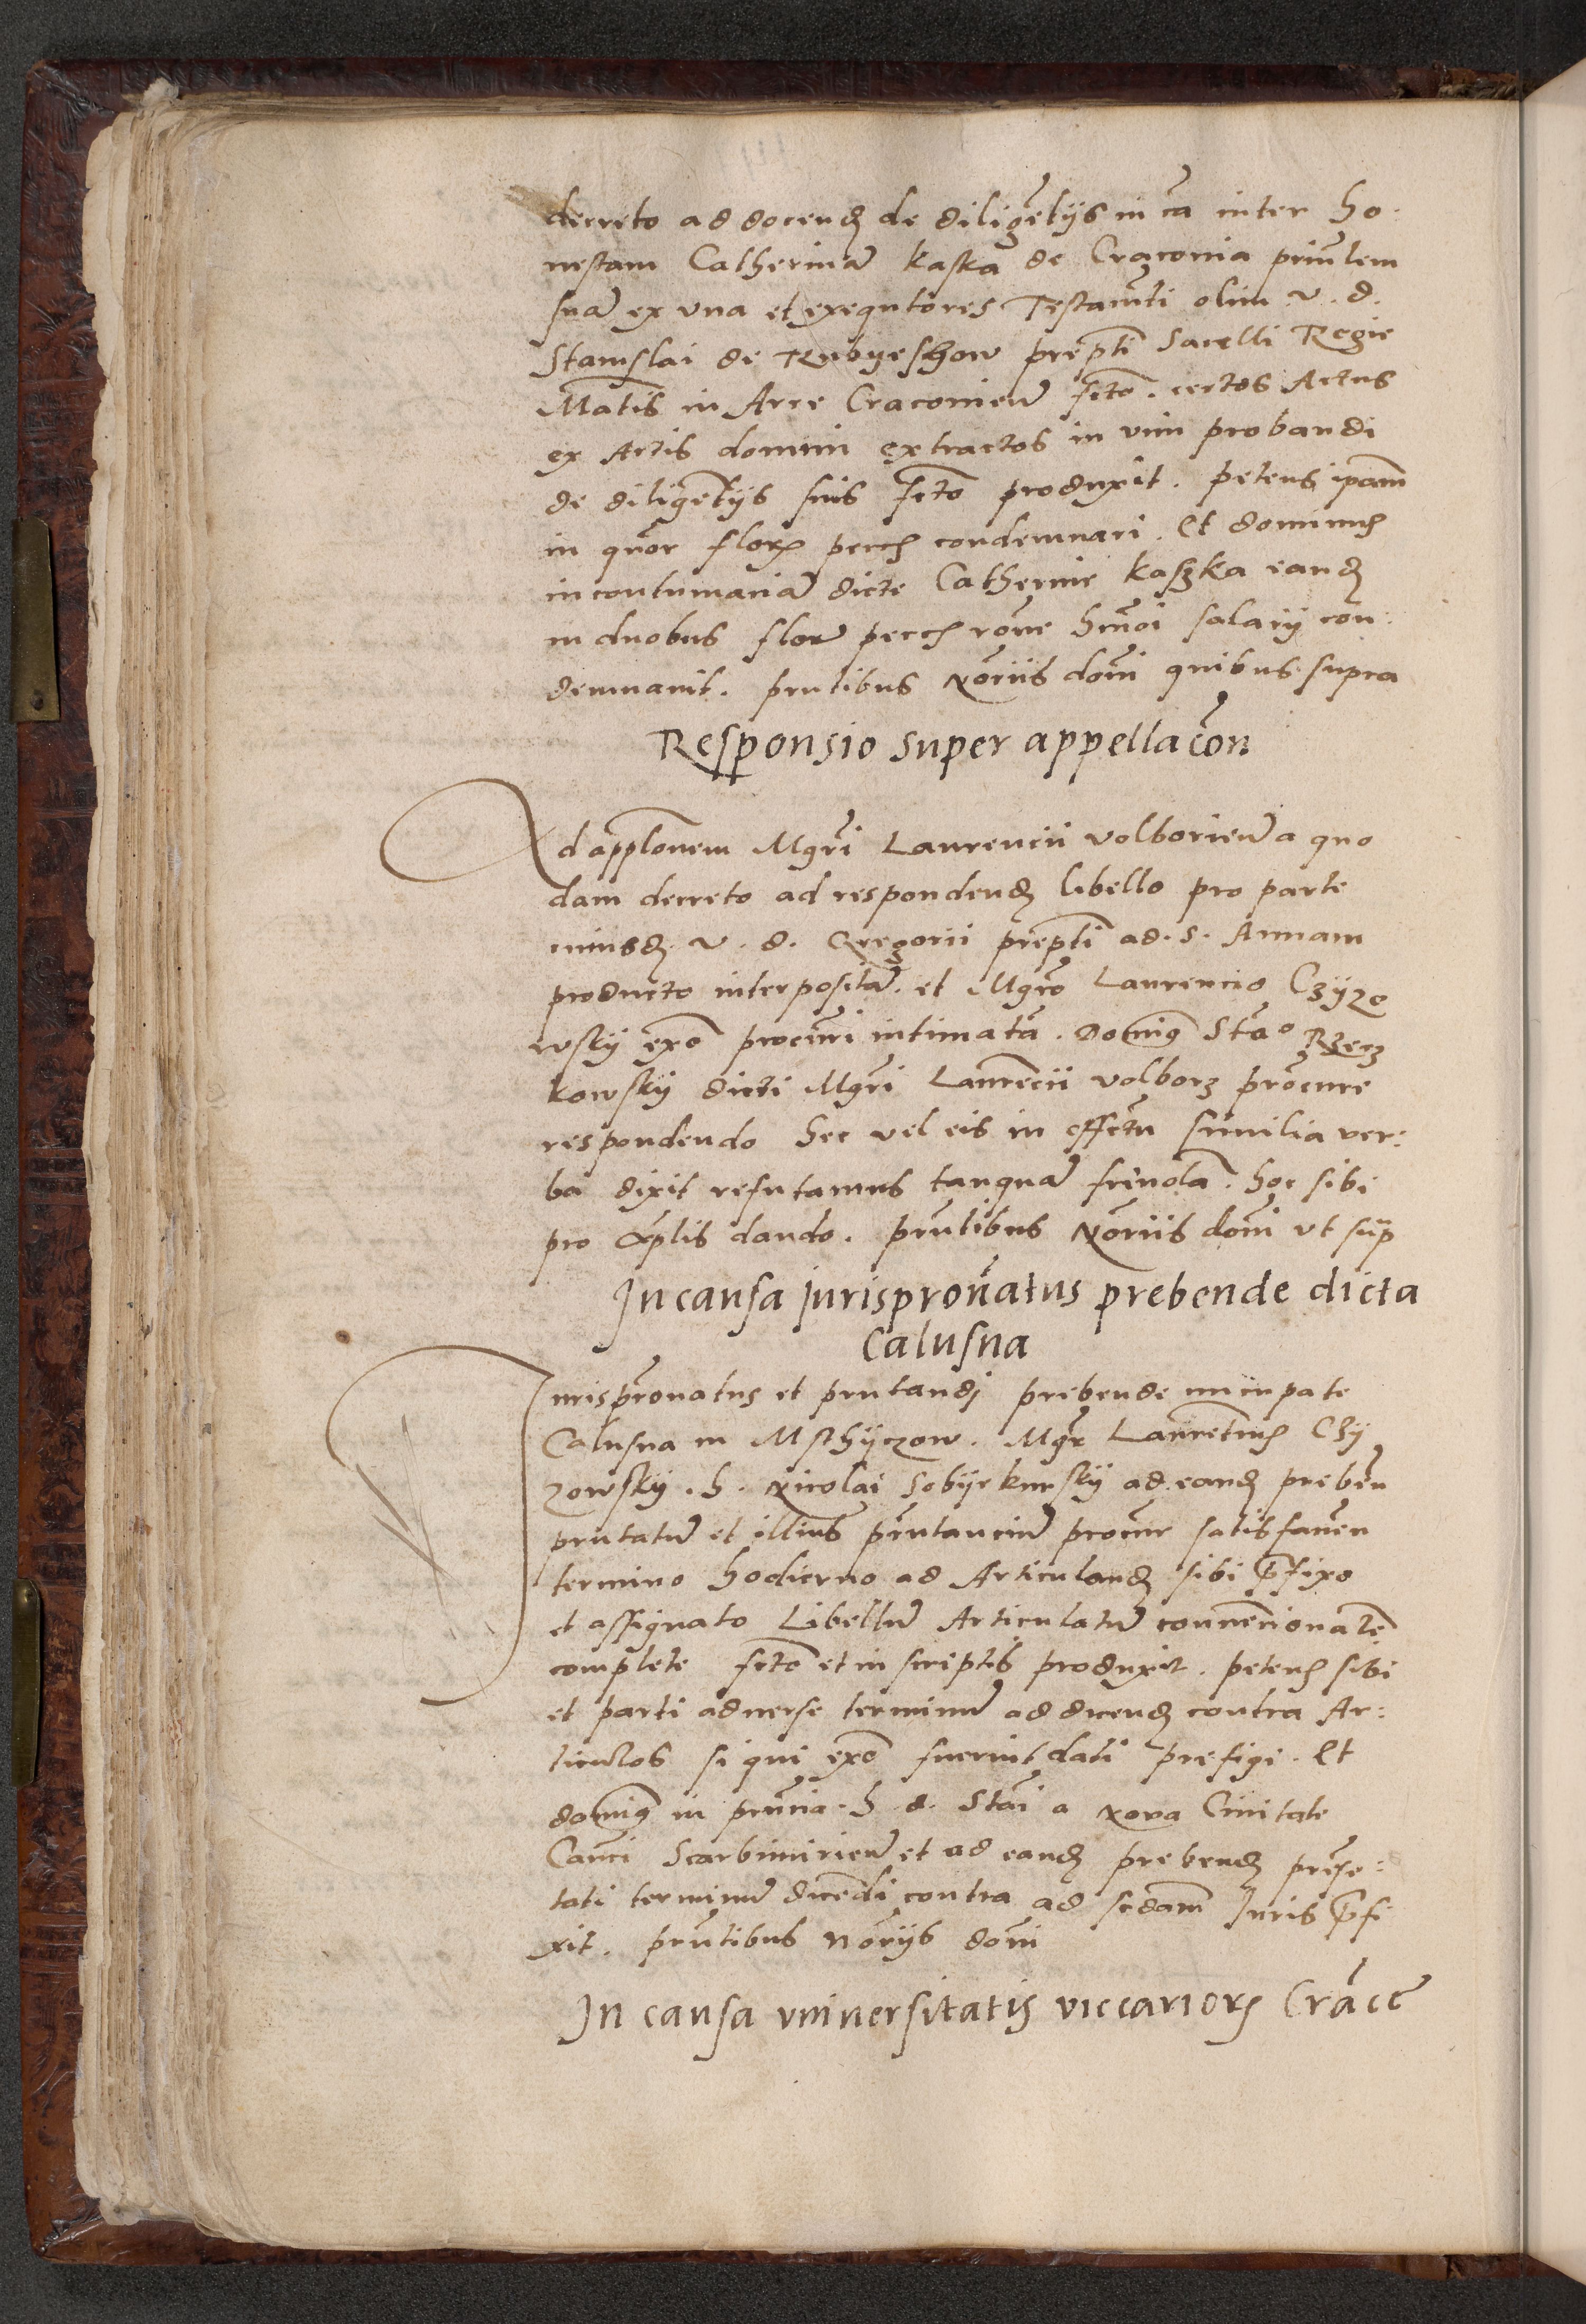 decreto ad docend de diligētijs in cā inter ho-
nestam Catherinā Kaska de Cracouia prinлem
suā ex vna et exequtores Testamti olim v. d.
Stanislai de Rubyeshow prepti Sacelli Regie
Matis in Arce Cracouien fcto. certos Actus
ex Actis domini extractos in vim probandi
de diligētijs suis fcto produxit. petens ipam
in quor flor pecc condemnari. Et dominus
in contumaciā dicte Catherine Kaszka eand
in duobus flor pecc rone hmoi salarij con-
demnavit. pntibus Noriis domi quibus supra
Responsio super appellacon
Ad applonem Mgri Laurencii volborien a quo
dam decreto ad respondend libello pro parte
v. d. Gregorii prepti ad. s. Annam
producto interpositā. et Mgro Laurencio Czyzo
wsky exo procuri intimatā. Domin Stao Rzecz
kowsky dicti Mgri Laurēcii volborz procure
respondendo hec vel eis in effectu similia ver-
ba dixit refutamus tanquā friuolā. hoc sibi
pro aplis dando. prntibus Noriis domi vt sup
In causa jurispronatus prebende dicta
Calusna
Jurispronatus et prntandj prebende nucupate
Calusna in Msthyczow. Mgr Laurētius Czy
zowsky. h. Nicolai Sobyekursky ad eand preben
prntatū et illius prntanciū procur satisfacien
termino hodierno ad Articuland sibi pfixo
et assignato Libellū Articulatū conuencionalē
complete fcto et in scriptis produxit. petens sibi
et parti aduerse terminū ad dicend contra Ar-
ticulos si qui exo fuerint dati prefigi. Et
domin in prncia. h. d. Stai a Noua Ciuitate
Canci Scarbimirien et ad eand prebend prese-
tati terminū dicēdi contra ad scdam Juris pfi
xit. prntibus Norijs domi
In causa vniuersitatis viccarior Cracē